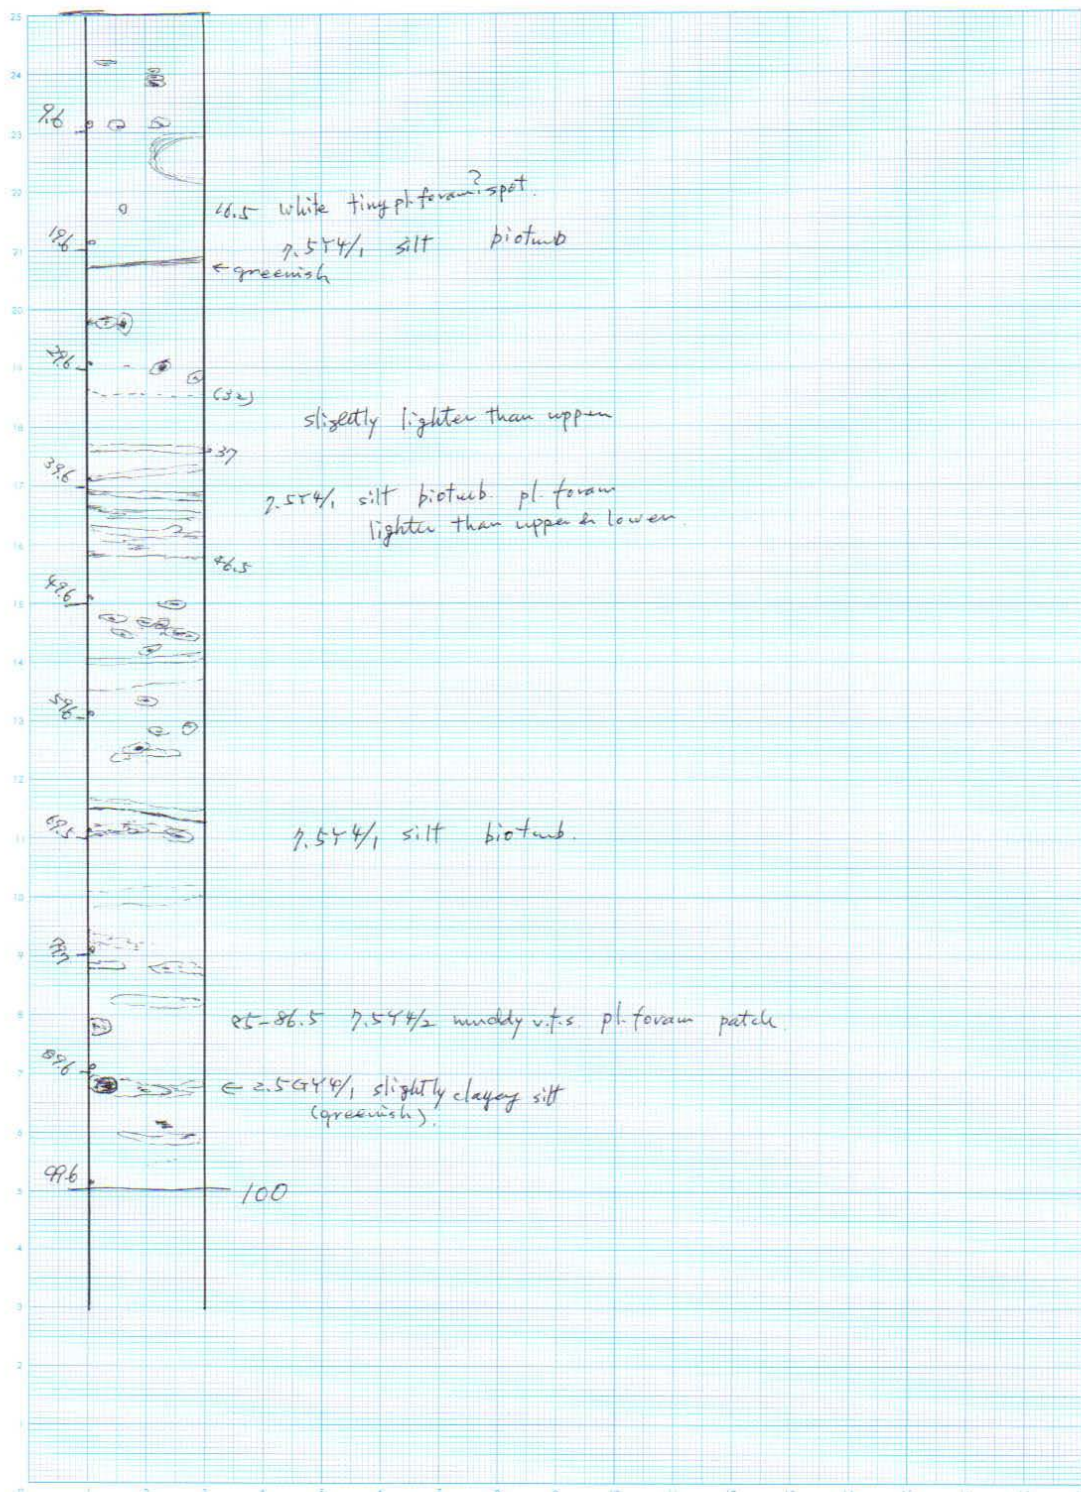 25
24
9.6
23
22
16.5 white tiny pl. foram? spot.
19.6
7.5Y4/1 silt bioturb
21
← greenish
20
29.6
19
(32)
slightly lighter than upper
18
37
39.6
17
7.5Y4/1 silt bioturb. pl. foram
lighter than upper & lower
16
46.5
49.6
15
14
59.6
13
12
69.5
11
7.5Y4/1 silt bioturb.
10
79.7
9
85-86.5 7.5Y4/2 muddy v.f.s. pl. foram patch
8
89.6
7
← 2.5GY4/1 slightly clayey silt
(greenish).
6
99.6
5
100
4
3
2
1